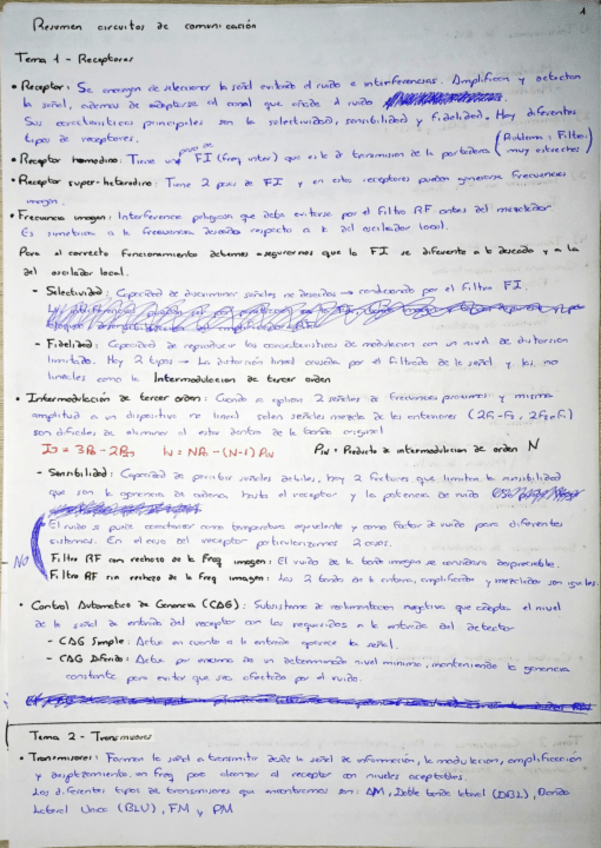 1
Resumen circuitos de comunicación
Tema 1 - Receptores
• Receptor: Se encargan de seleccionar la señal evitando el ruido e interferencias. Amplifican y detectan
la señal, ademas de adaptarse al canal que añade el ruido
Sus caracteristicas principales son la selectividad, sensibilidad y fidelidad. Hay diferentes
tipos de receptores.
• Receptor homodino: Tiene una paso de FI (freq inter) que es la de transmision de la portadora (Problema: Filtros muy estrechos)
• Receptor super-heterodino: Tiene 2 pasos de FI y en estos receptores pueden generarse frecuencias
imagen.
• Frecuencia imagen: Interferencia peligrosa que debe evitarse por el filtro RF antes del mezclador.
Es simetrica a la frecuencia deseada respecto a la del oscilador local.
Para el correcto funcionamiento debemos asegurarnos que la FI se diferente a la deseada y a la
del oscilador local.
- Selectividad: Capacidad de discriminar señales no deseadas → condicionado por el filtro FI.
- Fidelidad: Capacidad de reproducir las caracteristicas de modulacion con un nivel de distorsion
limitado. Hay 2 tipos → La distorsión lineal causada por el filtrado de la señal y las no
lineales como la Intermodulacion de tercer orden
• Intermodulación de tercer orden: Cuando se aplican 2 señales de frecuencias proximas y misma
amplitud a un dispositivo no lineal salen señales mezcla de las anteriores (2F1-F2, 2F2-F1)
son dificiles de eliminar al estar dentro de la banda original
I3 = 3P0 - 2P IN = NP0 - (N-1) PIN PIN = Producto de intermodulacion de orden N
- Sensibilidad: Capacidad de percibir señales debiles, hay 2 factores que limitan la sensibilidad
que son la ganancia de cadena hasta el receptor y la potencia de ruido
El ruido se puede caracterizar como temperatura equivalente y como factor de ruido para diferentes
sistemas. En el caso del receptor particularizamos 2 casos.
NO
Filtro RF con rechazo de la freq imagen: El ruido de la banda imagen se considera despreciable.
Filtro RF sin rechazo de la freq imagen: Las 2 bandas de la antena, amplificador y mezclador son iguales.
• Control Automatico de Ganancia (CAG): Subsistema de realimentacion negativa que adapta el nivel
de la señal de entrada del receptor con los requeridos a la entrada del detector
- CAG Simple: Actua en cuanto a la entrada aparece la señal.
- CAG Diferido: Actua por encima de un determinado nivel minimo, manteniendo la ganancia
constante para evitar que sea afectado por el ruido.
Tema 2 - Transmisores
• Transmisores: Forman la señal a transmitir desde la señal de información, la modulacion, amplificacion
y desplazamiento en freq para alcanzar al receptor con niveles aceptables.
Los diferentes tipos de transmisores que encontramos son: AM, Doble banda lateral (DBL), Banda
Lateral Unica (BLU), FM y PM